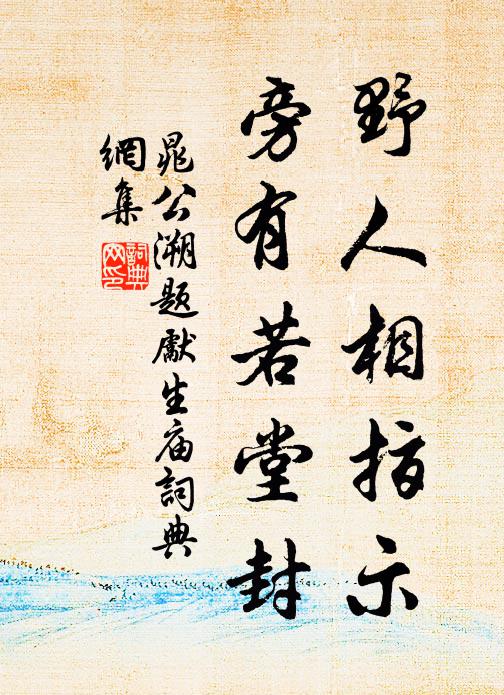 野人相指示
旁有若堂封
晁公溯题献生庙詞典
網集
詞典
网印